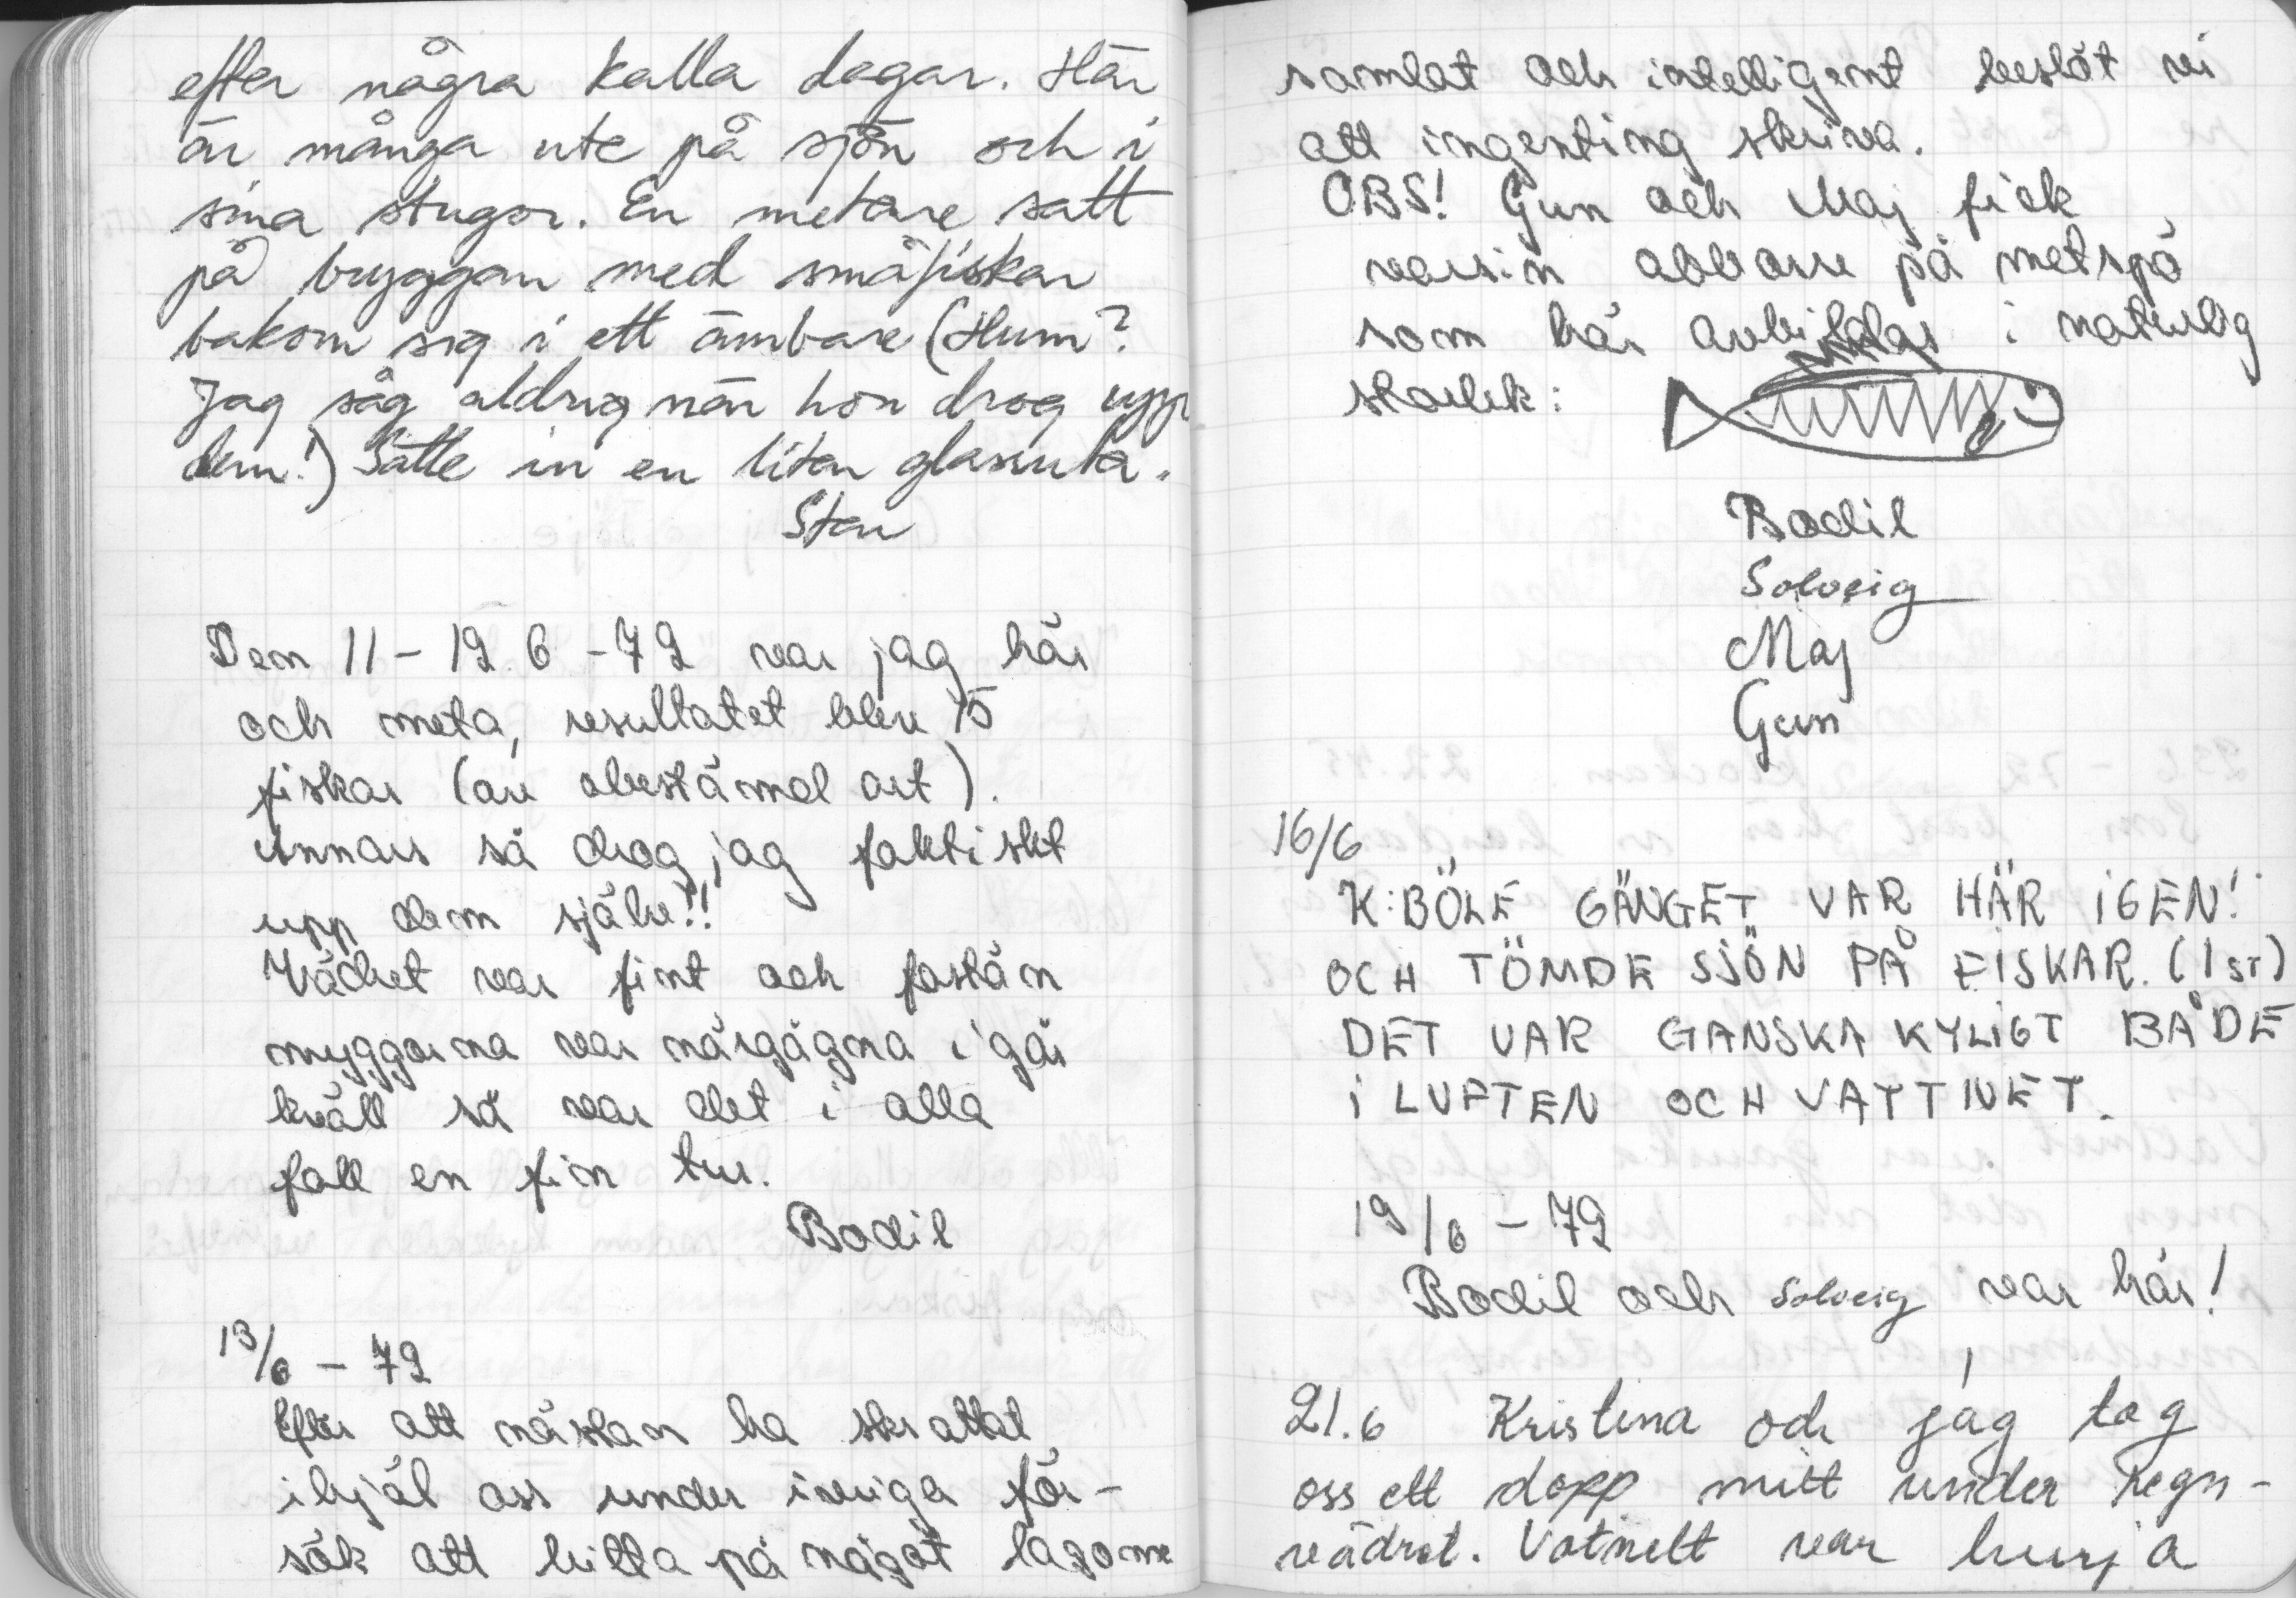 efter några kalla dagar. Här
är många ute på sjön och i
sina stugor. En metare satt
på bryggan med småfiskar
bakom sig i ett ämbare (Hum?
Jag såg aldrig när hon drog upp
dem!) Satte in en liten glasruta.
Sten
Den 11 - 12 6 - 79 var jag här
och meta, resultatet blev 15
fiskar (av obestämd art).
Annars så drog jag faktiskt
upp dem själv!!
Vädret var fint och fastän
myggorna var närgågna i går
kväll så var det i alla
fall en fin tur.
Bodil
13/6 - 79
Efter att nästan ha skrattat
ihjäl oss under ivriga för-
sök att hitta på något lagom
samlat och intelligent beslöt vi
att ingenting skriva.
OBS! Gun och Maj fick
varsin abborre på metspö
som här avbildas i naturlig
storlek:
Bodil
Solveig
Maj
Gun
16/6
K:BÖLE GÄNGET VAR HÄR IGEN!
OCH TÖMDE SJÖN PÅ FISKAR. (1 ST)
DET VAR GANSKA KYLIGT BÅDE
i LUFTEN OCH VATTNET.
19/6 - 79
Bodil och Solveig var här!
21.6 Kristina och jag tog
oss ett dopp mitt under regn-
vädret. Vatnett var hurja